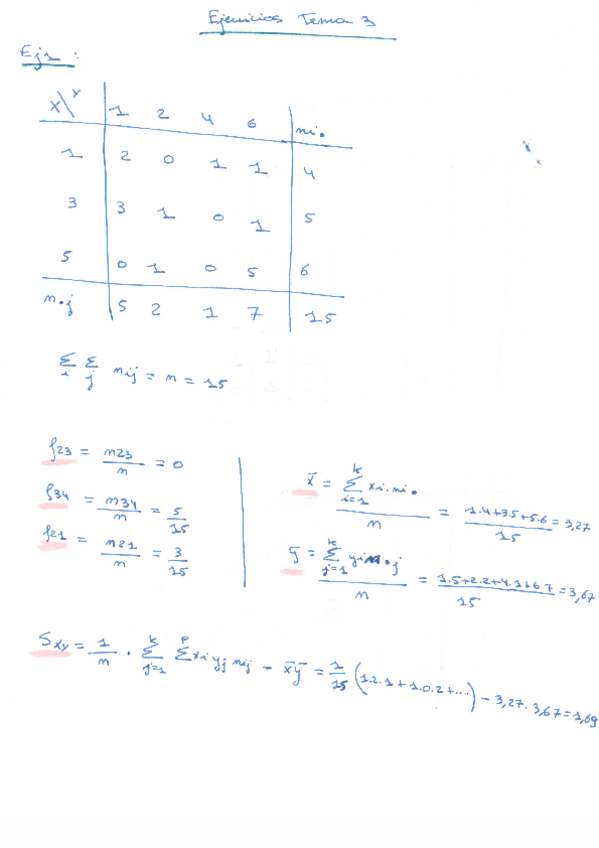 Ejercicios Tema 3
Ej1:
X\Y 1 2 4 6 ni.
1 2 0 1 1 4
3 3 1 0 1 5
5 0 1 0 5 6
n.j 5 2 1 7 15
Σi Σj nij = n = 15
f23 = n23/n = 0
f34 = n34/n = 5/15
f21 = n21/n = 3/15
x̄ = Σ(i=1, k) xi.ni. / n = 1.4+3.5+5.6 / 15 = 3,27
ȳ = Σ(j=1, k) yj n.j / n = 1.5+2.2+4.1+6.7 / 15 = 3,67
Sxy = 1/n · Σ(j=1, k) Σ(p) xi yj nij - x̄ȳ = 1/15 (1.2.1 + 1.0.2 + ....) - 3,27. 3,67 = 1,69